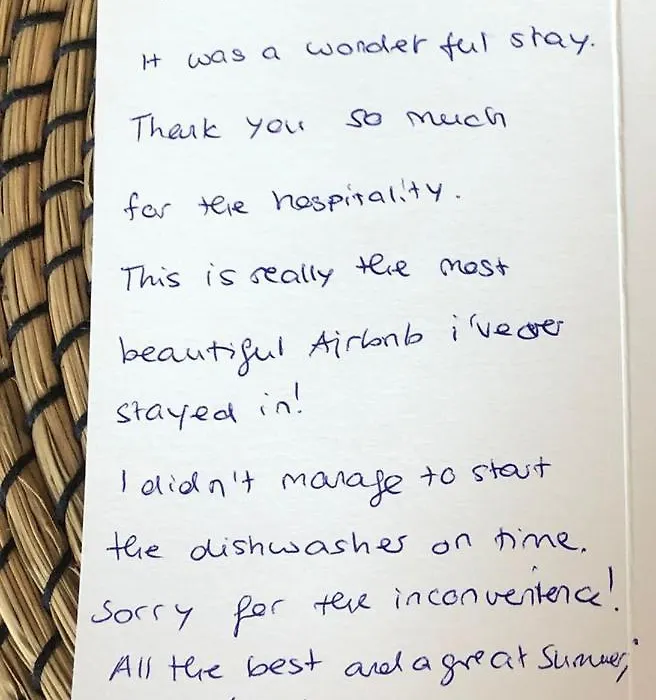 It was a wonderful stay.
Thank you so much
for the hospitality.
This is really the most
beautiful Airbnb i've ever
stayed in!
I didn't manage to start
the dishwasher on time.
Sorry for the inconvenience!
All the best and a great Summer,